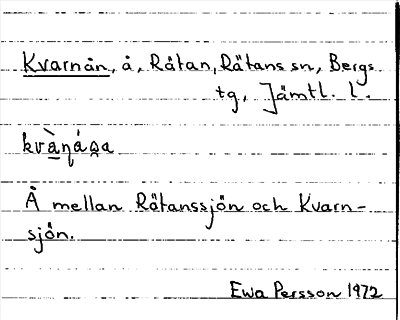 Kvarnån, å, Råtan, Rätans sn, Bergs
tg, Jämtl. l.
Å mellan Rätanssjön och Kvarn-
sjön.
Ewa Persson 1972